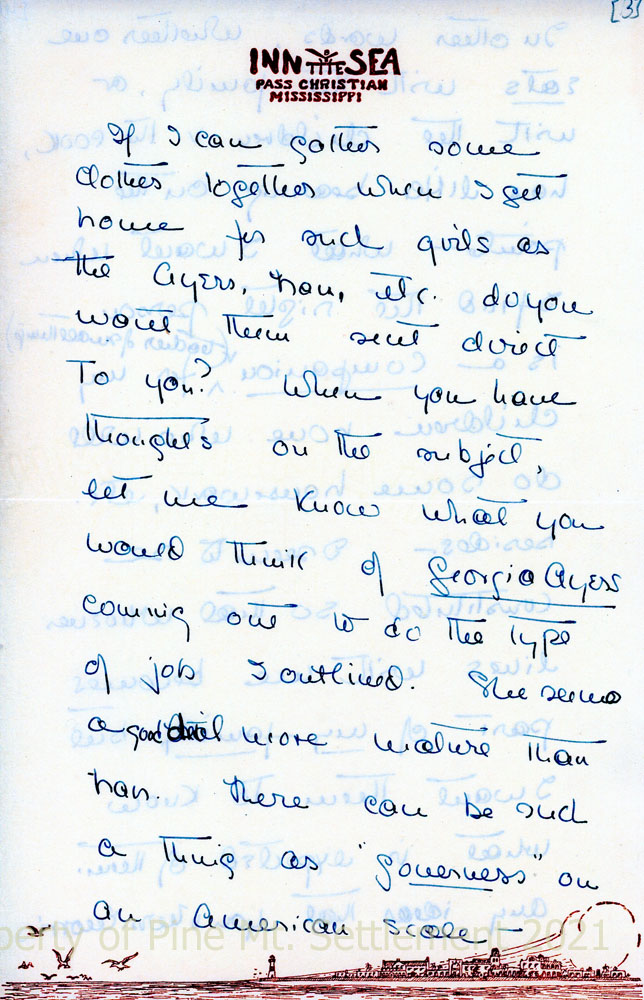 [3]
INN BY THE SEA
PASS CHRISTIAN
MISSISSIPPI
If I can gather some
clothes together when I get
home for such girls as
the Ayers, Nan, etc. do you
want them sent direct
to you? When you have
thoughts on the subject,
let me know what you
would think of Georgia Ayers
coming out to do the type
of job I outlined. She seems
a good deal more mature than
Nan. There can be such
a thing as "governess" on
an American scale –
perty of Pine Mt. Settlement 2021